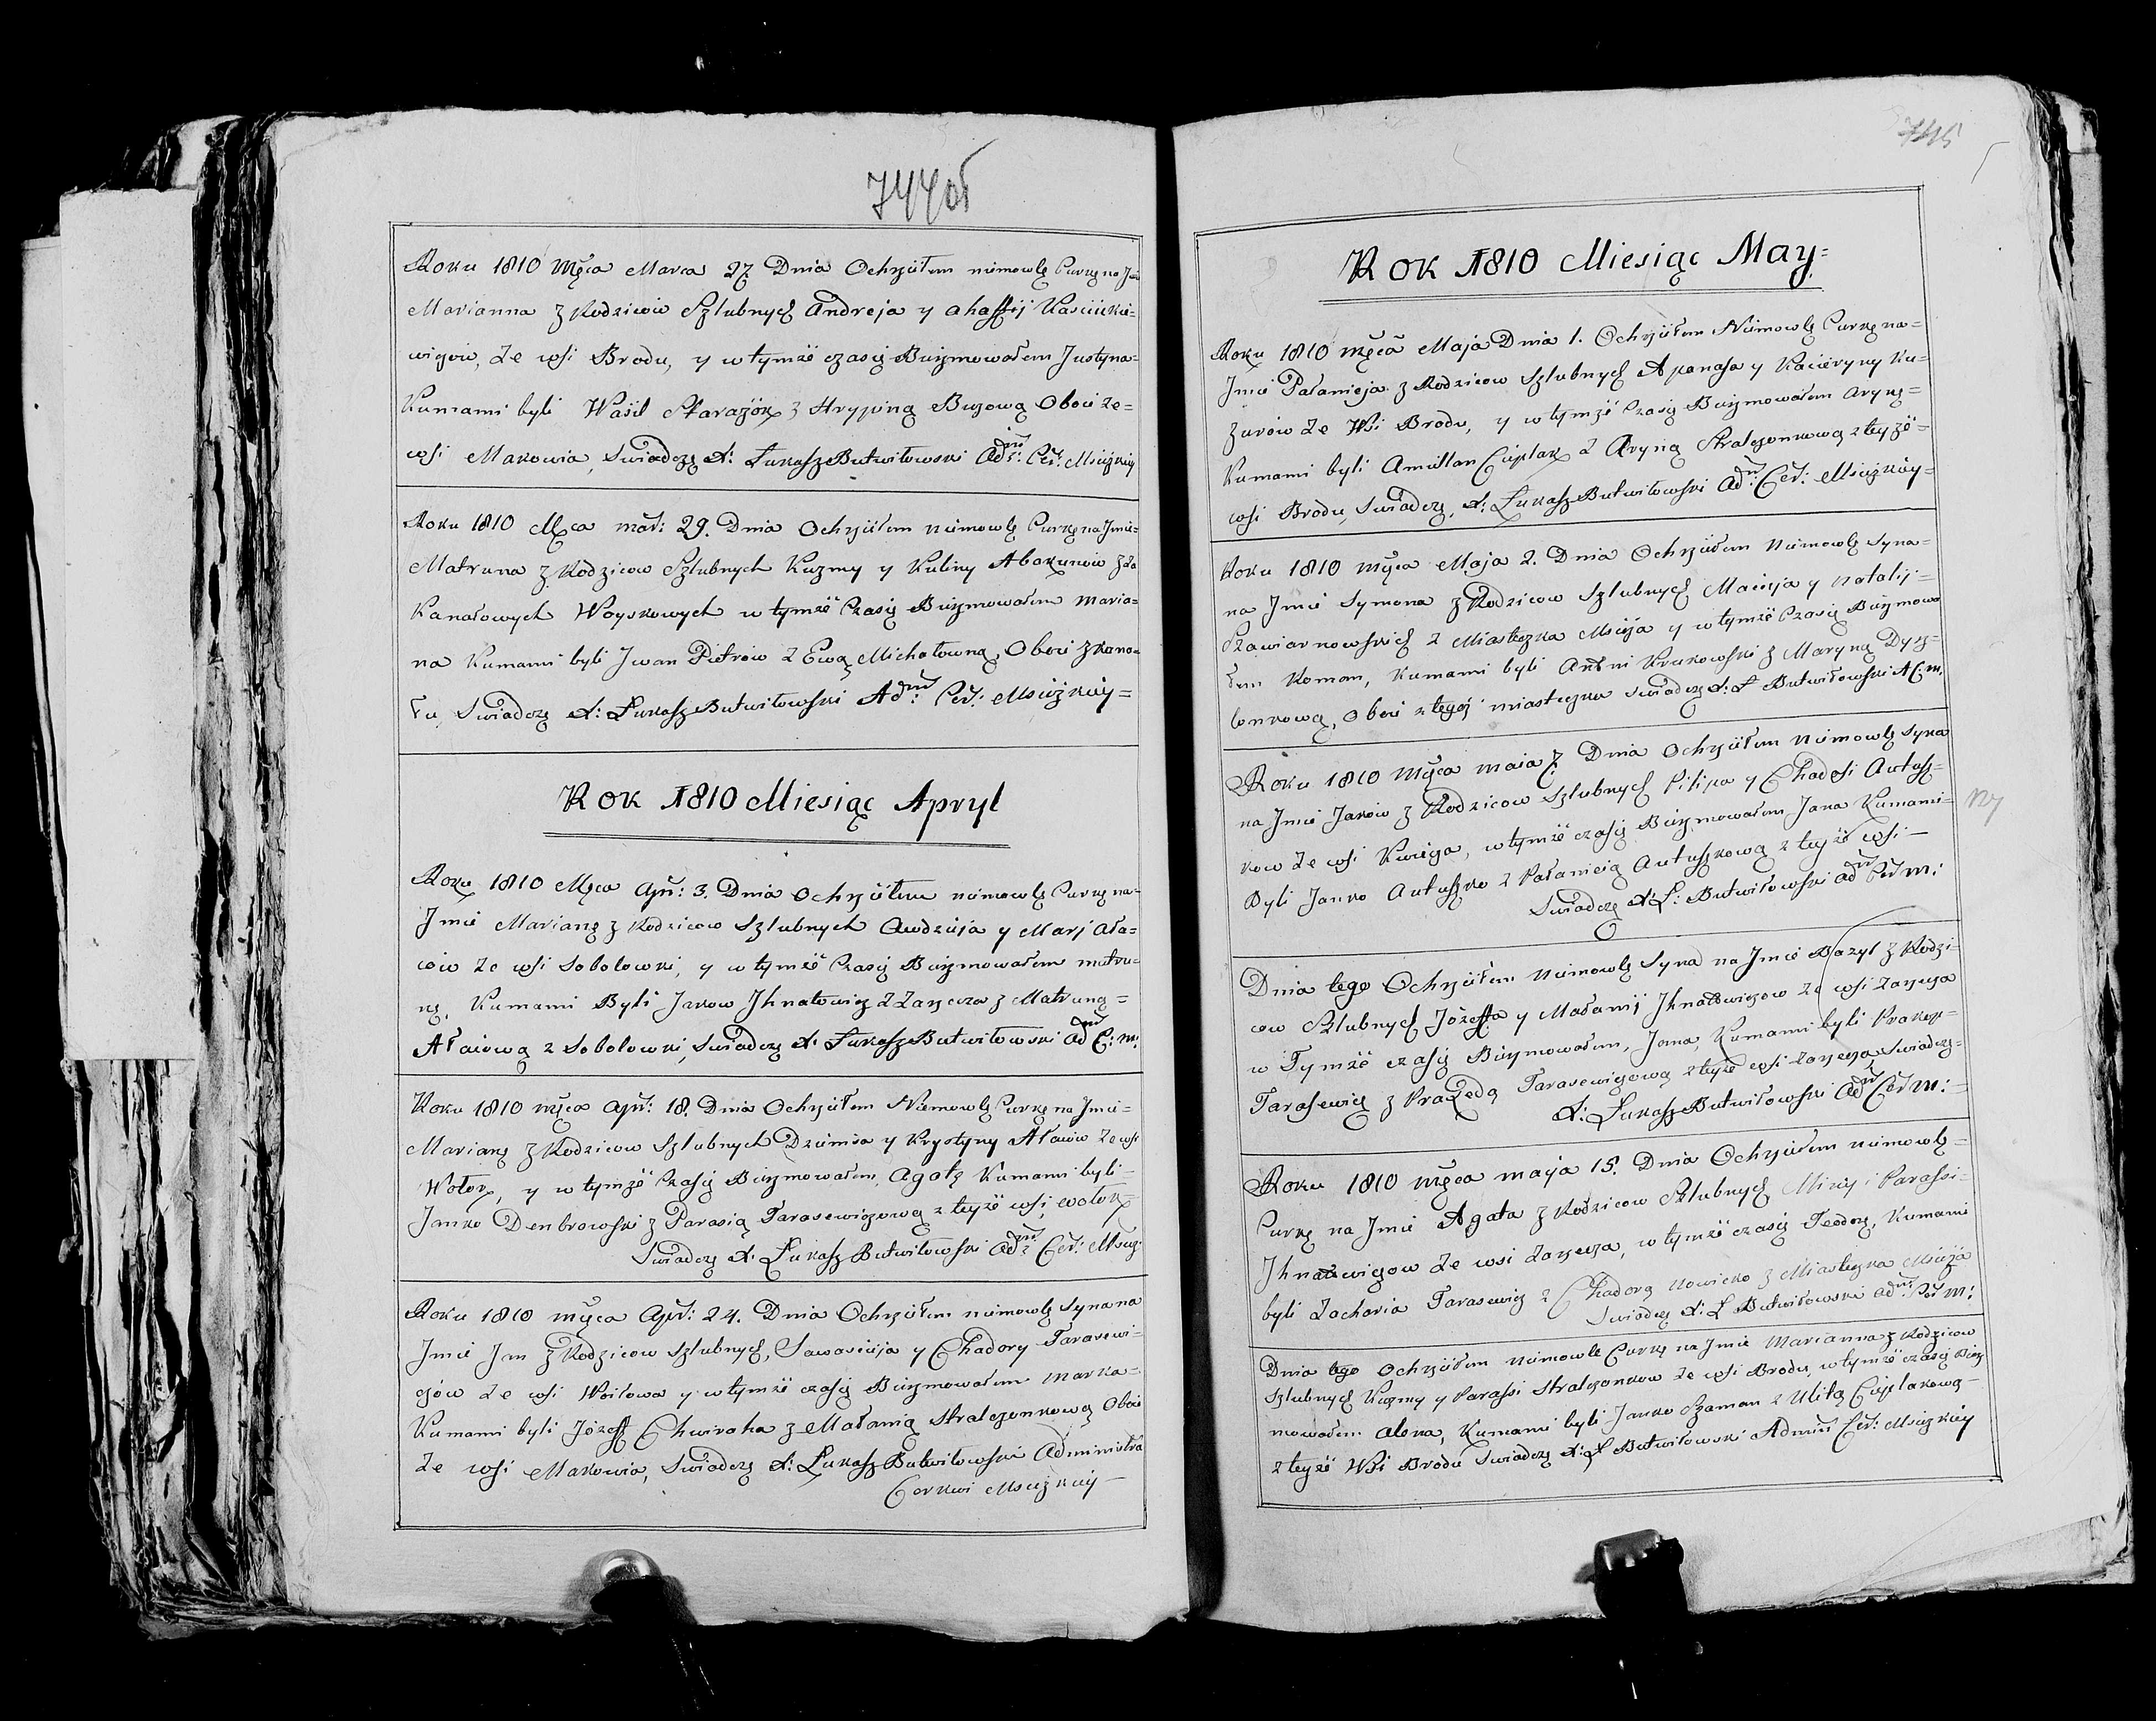 744 об
Roku 1810 Męca Marca 27. Dnia Ochrzciłem niemowlę Curkę na Jmie
Marianna z Rodzicow Szlubnych Andreja y Ahaffij Kasciukie=
wiczow, Ze wsi Brodu, y w tymże czasie Bierzmowałem Justyna=
Kumami byli Wasil z Hryping Buzową Oboie ze=
wsi Makowia, Swiadczę X: Łukasz Butwiłowski Adm: Cer: Mscizkiey
Roku 1810 Męca mar: 29. Dnia Ochrzciłem niemowlę Curkę na Jmie=
Matruna z Rodzicow Szlubnych Kuzmy y Kuliny Abakunow
Kanałowych Woyskowych w tymże Czasie Bierzmowałem Maria=
na Kumami byli Jwan Pietrow z Ewą Michałowną, Oboie z kana=
łu, Swiadczę X: Łukasz Butwiłowski Adm: Cer: Mscizkiey=
Rok 1810 Miesiąc Apryl
Roku 1810 Męca Apr: 3. Dnia Ochrzciłem niemowlę Curkę na=
Jmie Marianę z Rodzicow Szlubnych Awdzieja y Marj Ała=
iow ze wsi Sobolowki, y w tymże Czasie Bierzmowałem matru=
nę, Kumami Byli Jakow Jhnatowicz z Zarzecza z Matruną=
Ałaiową z Sobolowki, Swiadczę X: Łukasz Butwiłowski Adm C: M:
Roku 1810 męca Apr: 18. Dnia Ochrzciłem Niemowlę Curkę na Jmie=
Marianę z Rodzicow Szlubnych Dziemiea y Krystyny Ałaiow Ze wsi
Wołok, y w tymże Czasie Bierzmowałem, Agatę Kumami byli=
Janko Denbrowski z Parasią Tarasewiczową z teyże wsi, Wołok=
Swiadczę X: Łukasz Butwiłowski Adm: Cer: Msciz:
Roku 1810 męca Apr: 24. Dnia Ochrzciłem niemowlę Syna na
Jmie Jan z Rodzicow Szlubnych, Sawascieja y Chadory Tarasewi=
czow ze wsi Woiłowa y w tymże czasie Bierzmowałem Marka=
Kumami byli Jozeff Chwiraha z Małanią Stralczonkową Oboie
Ze wsi Makowia, Swiadczę X: Łukasz Butwiłowski Administra
Cerkwi Mscizkiey—
745
Rok 1810 Miesiąc May=
Roku 1810 męca Maja Dnia 1. Ochrzciłem Niemowlę Curkę na=
Jmie Pałanieja z Rodzicow Szlubnych Apanasa y Kacieryny Ku=
zurow Ze Wsi Brodu, y w tymże Czasie Bierzmowałem Arynę=
Kumami byli Amillan Cieplak z Aryną Stralczonkową z teyże=
wsi Brodu, Swiadczę, X: Łukasz Butwiłowski Adm: Cer: Mscizkiey=
Roku 1810 męca Maja 2. Dnia Ochrzciłem Niemowlę Syna=
na Jmie Symona z Rodzicow Szlubnych Macieja y Natalij=
Czawiarnowskich z Miasteczka Mscizza y w tymże Czasie Bierzmowa
łem Roman, Kumami byli Antoni Krukowski z Maryną Dysz=
lonkową, Oboie z tegoż miasteczka Swiadczę X: Ł Butwiłowski A C: M.
Roku 1810 Męca maia 7. Dnia Ochrzciłem Niemowlę Syna
na Jmie Jakow z Rodzicow Szlubnych Filipa y Chadosi Autusz=
kow Ze wsi, w tymże czasie Bierzmowałem Jana Kumami=
Byli Janko Autuszko z Pałanieią Autuszkową z teyże wsi—
Swiadczę X Ł: Butwiłowski Adm Cer M:
Dnia tego Ochrzciłem Niemowlę Syna na Jmie Bazyl z Rodzi=
cow Szlubnych Jozeffa y Małanij Jhnatowiczow Ze wsi Zarzecza
w Tymże czasie Bierzmowałem, Jana, Kumami byli Prakop=
Tarasewicz z Praxedą Tarasewiczową z teyże wsi Zarzecza, Swiadczę=
X: Łukasz Butwiłowski Adm Cer M:=
Roku 1810 męca maija 15. Dnia Ochrzciłem niemowlę=
Curkę na Jmie Agata z Rodzicow Szlubnych Mikity i Parassi=
Jhnatewiczow Ze wsi Zarzecza, w tymże czasie Teodorę, Kumami
byli Zacharia Tarasewicz z Chadorą Nowicko z Miasteczka Mscizza
Swiadczę X: Ł Butwiłowski Adm: Cer M:
Dnia tego Ochrzciłem niemowle Curkę na Jmie Marianna z Rodzicow
Szlubnych Kuzmy y Parassi Stralczonkow Ze wsi Brodu, w tymże czasie Bierz
mowałem Alena, Kumami byli Janko Szaman z Ulitą Cieplakową—
z teyże Wsi Brodu Swiadczę X: Ł Butwiłowski Admin Cer: Mscizkiey